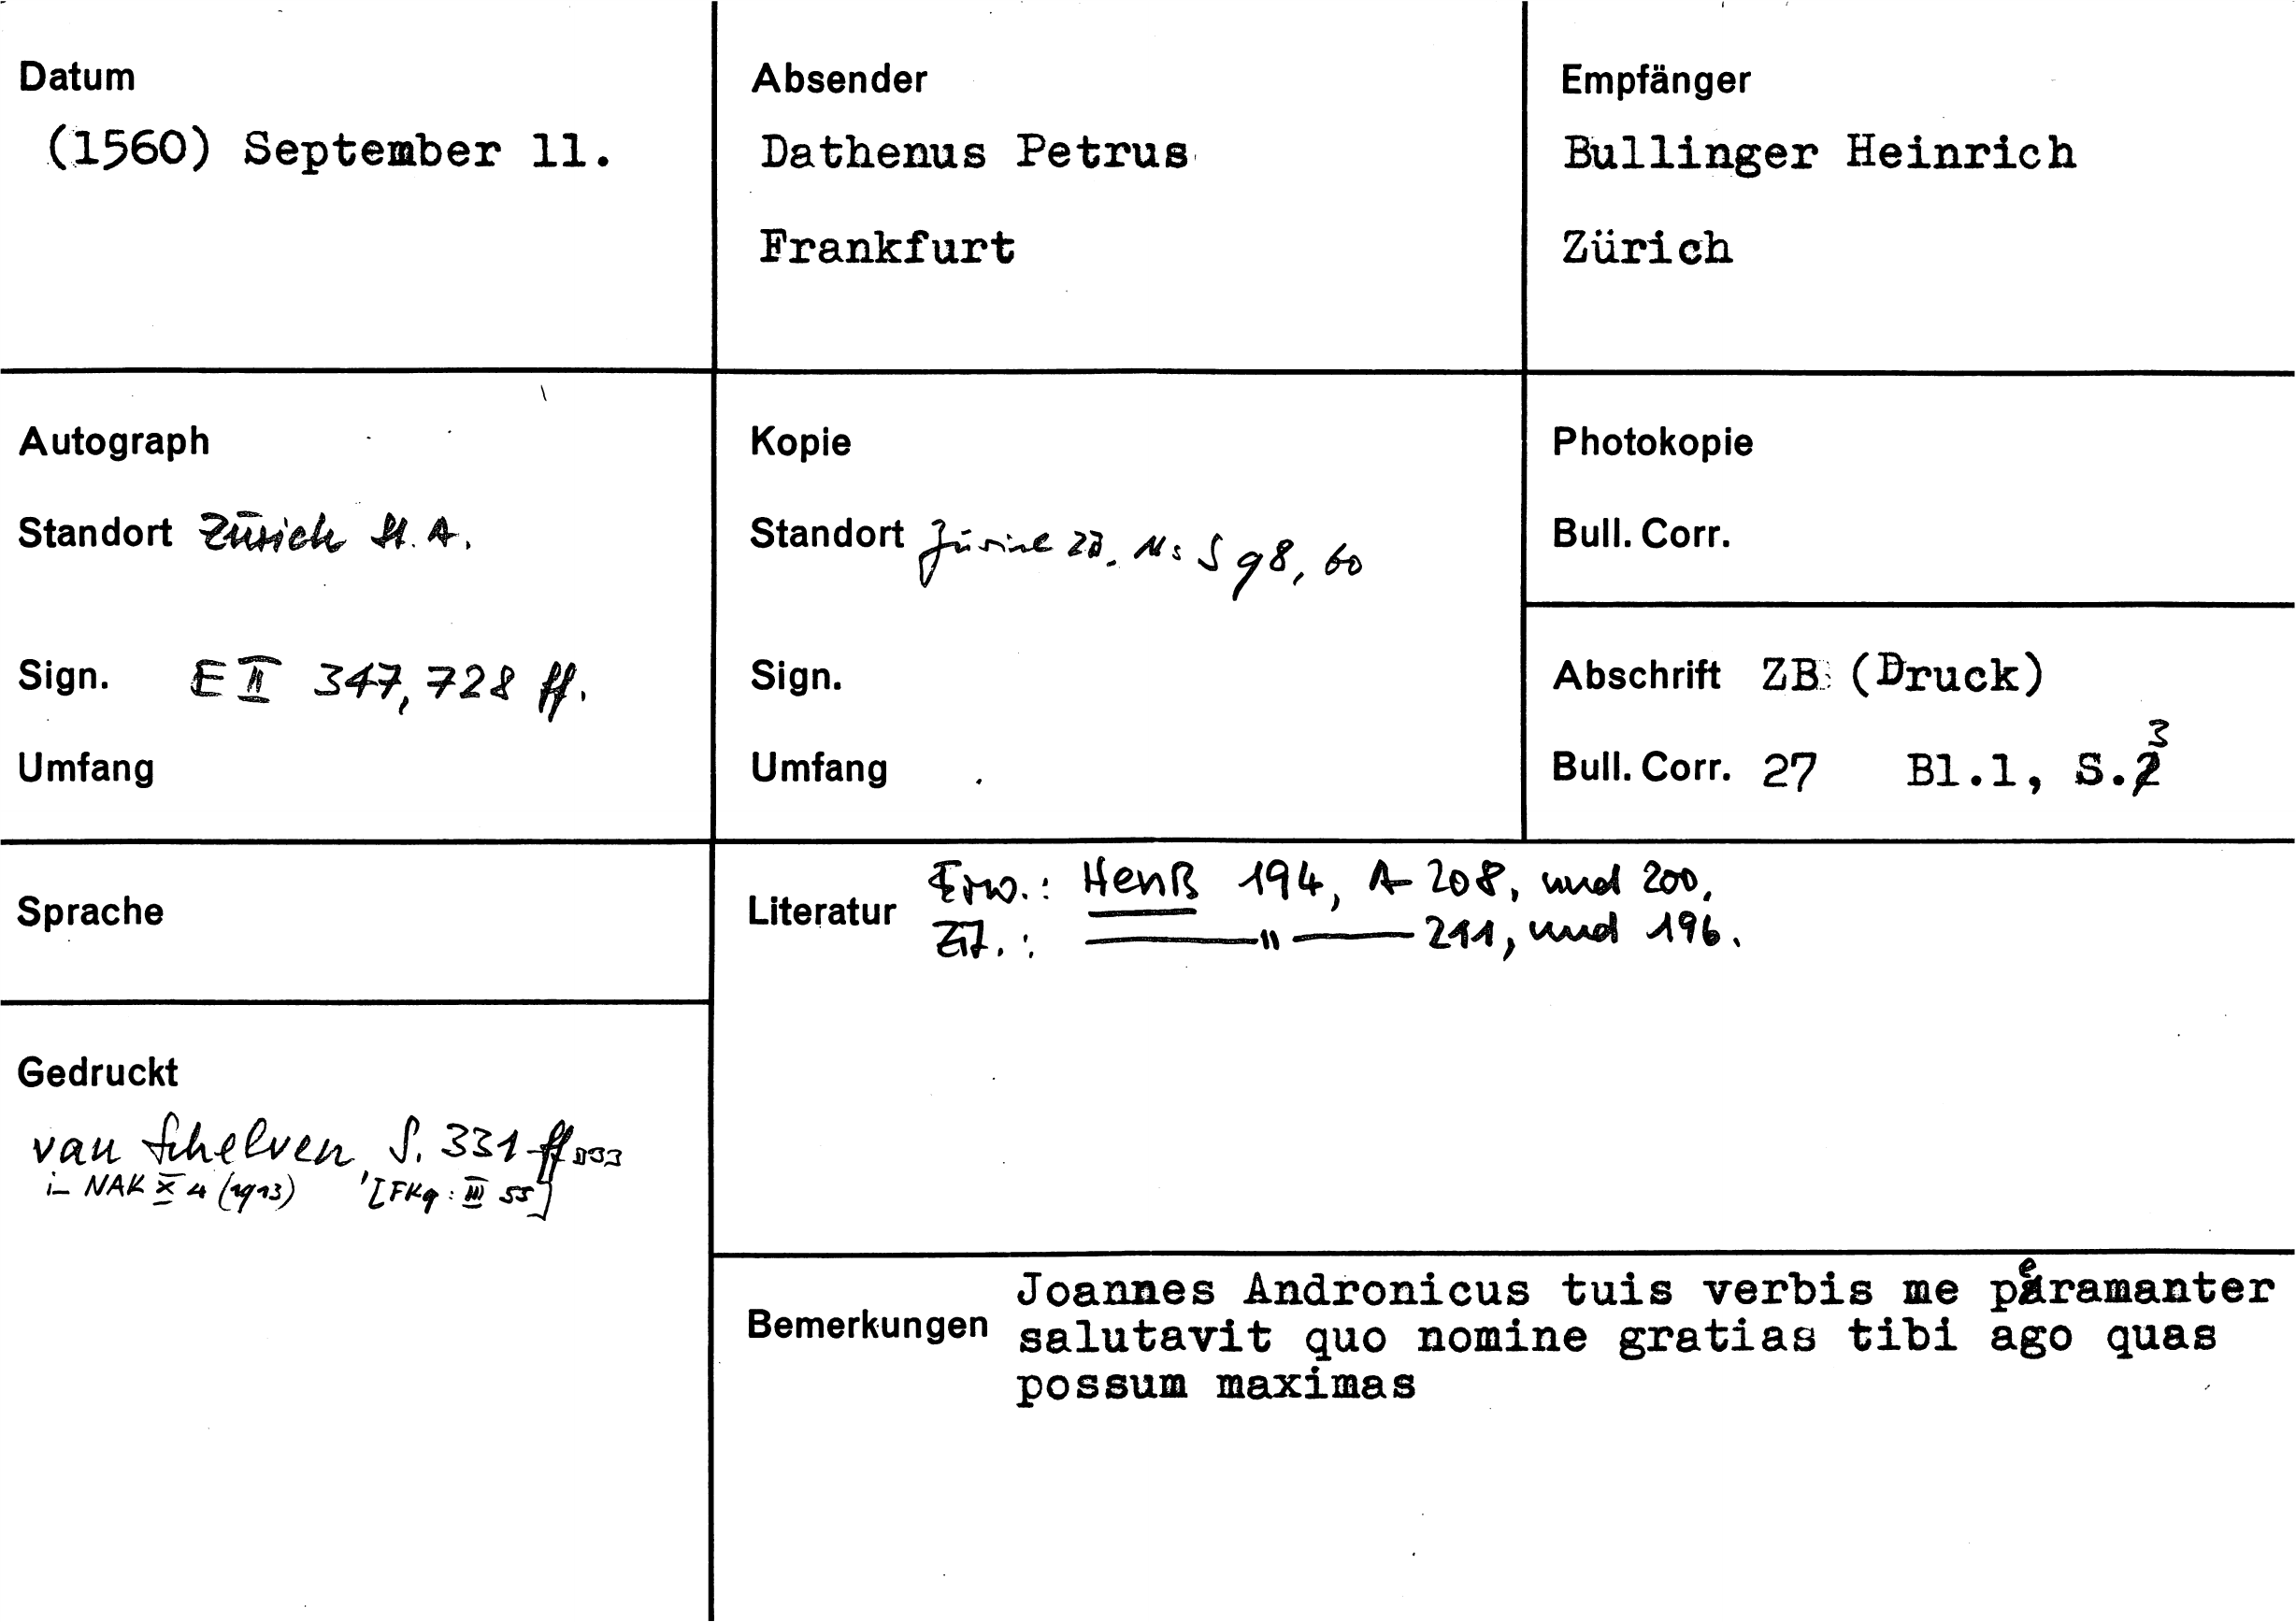 Datum
(1560) September 11.
Absender
Dathenus Petrus
Frankfurt
Empfänger
Bullinger Heinrich
Zürich
Autograph
Standort Zürich St. A.
Sign. E II 347, 728 ff.
Umfang
Kopie
Standort Zürich ZB. Ms S 98, 60
Sign.
Umfang
Photokopie
Bull. Corr.
Abschrift ZB (Druck)
Bull. Corr. 27 Bl.1, S.3
Sprache
Literatur Erw.: Henß 194, A 208, und 200.
Zit.: —"— 211, und 196.
Gedruckt
van Schelven, S. 331 ff
i_ NAK X 4 (1913) [FKg: III 55]
Bemerkungen Joannes Andronicus tuis verbis me peramanter
salutavit quo nomine gratias tibi ago quas
possum maximas